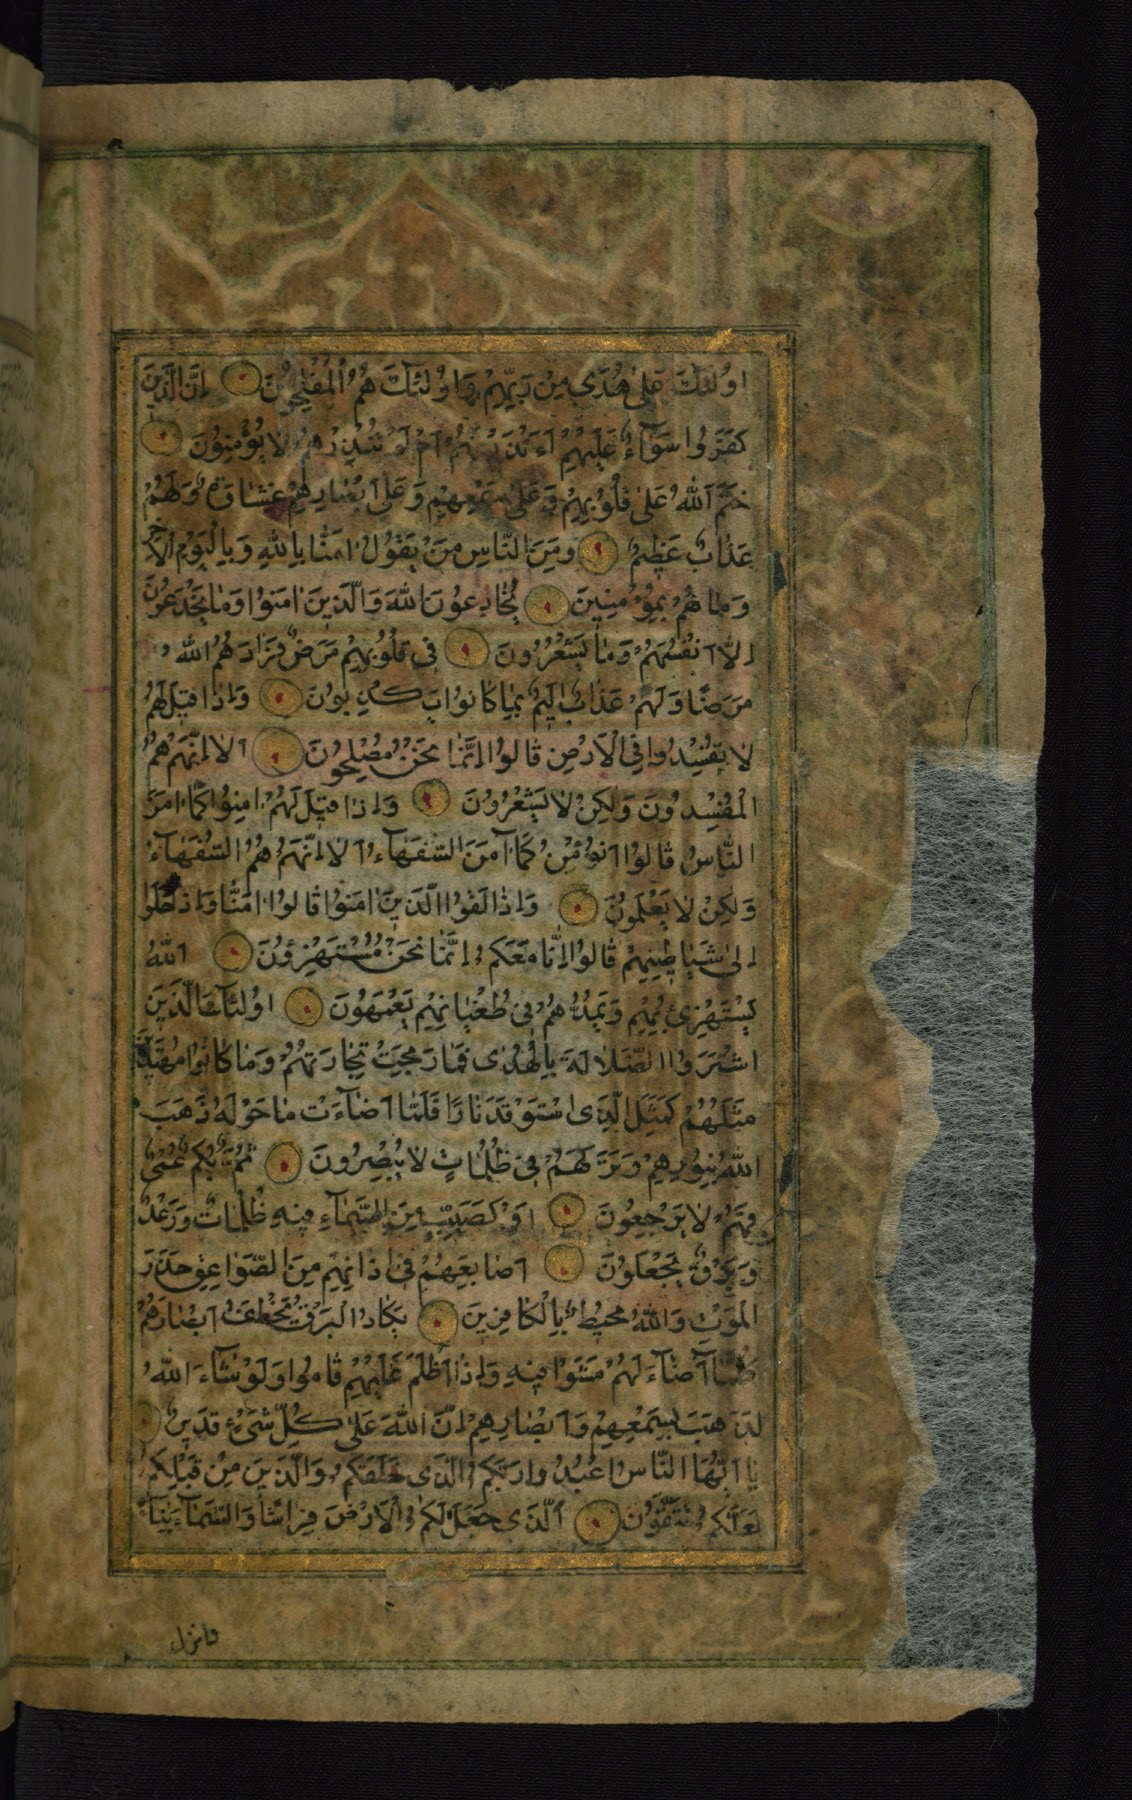 اُولٰئِكَ عَلىٰ هُدًى مِنْ رَبِّهِمْ وَاُولٰئِكَ هُمُ الْمُفْلِحُونَ اِنَّ الَّذِينَ
كَفَرُوا سَوَآءٌ عَلَيْهِمْ ءَاَنْذَرْتَهُمْ اَمْ لَمْ تُنْذِرْهُمْ لا يُؤْمِنُونَ
خَتَمَ اللّٰهُ عَلىٰ قُلُوبِهِمْ وَعَلىٰ سَمْعِهِمْ وَعَلىٰ اَبْصَارِهِمْ غِشَاوَةٌ وَلَهُمْ
عَذَابٌ عَظِيمٌ وَمِنَ النَّاسِ مَنْ يَقُولُ اٰمَنَّا بِاللّٰهِ وَبِالْيَوْمِ الْاٰخِرِ
وَمَا هُمْ بِمُؤْمِنِينَ يُخَادِعُونَ اللّٰهَ وَالَّذِينَ اٰمَنُوا وَمَا يَخْدَعُونَ
اِلَّا اَنْفُسَهُمْ وَمَا يَشْعُرُونَ فِي قُلُوبِهِمْ مَرَضٌ فَزَادَهُمُ اللّٰهُ
مَرَضًا وَلَهُمْ عَذَابٌ اَلِيمٌ بِمَا كَانُوا يَكْذِبُونَ وَاِذَا قِيلَ لَهُمْ
لا تُفْسِدُوا فِي الْاَرْضِ قَالُوا اِنَّمَا نَحْنُ مُصْلِحُونَ اَلا اِنَّهُمْ هُمُ
الْمُفْسِدُونَ وَلٰكِنْ لا يَشْعُرُونَ وَاِذَا قِيلَ لَهُمْ اٰمِنُوا كَمَا اٰمَنَ
النَّاسُ قَالُوا اَنُؤْمِنُ كَمَا اٰمَنَ السُّفَهَآءُ اَلا اِنَّهُمْ هُمُ السُّفَهَآءُ
وَلٰكِنْ لا يَعْلَمُونَ وَاِذَا لَقُوا الَّذِينَ اٰمَنُوا قَالُوا اٰمَنَّا وَاِذَا خَلَوْا
اِلىٰ شَيَاطِينِهِمْ قَالُوا اِنَّا مَعَكُمْ اِنَّمَا نَحْنُ مُسْتَهْزِؤُنَ اَللّٰهُ
يَسْتَهْزِئُ بِهِمْ وَيَمُدُّهُمْ فِي طُغْيَانِهِمْ يَعْمَهُونَ اُولٰئِكَ الَّذِينَ
اشْتَرَوُا الضَّلالَةَ بِالْهُدٰى فَمَا رَبِحَتْ تِجَارَتُهُمْ وَمَا كَانُوا مُهْتَدِينَ
مَثَلُهُمْ كَمَثَلِ الَّذِي اسْتَوْقَدَ نَارًا فَلَمَّا اَضَآءَتْ مَا حَوْلَهُ ذَهَبَ
اللّٰهُ بِنُورِهِمْ وَتَرَكَهُمْ فِي ظُلُمَاتٍ لا يُبْصِرُونَ صُمٌّ بُكْمٌ عُمْيٌ
فَهُمْ لا يَرْجِعُونَ اَوْ كَصَيِّبٍ مِنَ السَّمَآءِ فِيهِ ظُلُمَاتٌ وَرَعْدٌ
وَبَرْقٌ يَجْعَلُونَ اَصَابِعَهُمْ فِي اٰذَانِهِمْ مِنَ الصَّوَاعِقِ حَذَرَ
الْمَوْتِ وَاللّٰهُ مُحِيطٌ بِالْكَافِرِينَ يَكَادُ الْبَرْقُ يَخْطَفُ اَبْصَارَهُمْ
كُلَّمَا اَضَآءَ لَهُمْ مَشَوْا فِيهِ وَاِذَا اَظْلَمَ عَلَيْهِمْ قَامُوا وَلَوْ شَآءَ اللّٰهُ
لَذَهَبَ بِسَمْعِهِمْ وَاَبْصَارِهِمْ اِنَّ اللّٰهَ عَلىٰ كُلِّ شَيْءٍ قَدِيرٌ
يَا اَيُّهَا النَّاسُ اعْبُدُوا رَبَّكُمُ الَّذِي خَلَقَكُمْ وَالَّذِينَ مِنْ قَبْلِكُمْ
لَعَلَّكُمْ تَتَّقُونَ اَلَّذِي جَعَلَ لَكُمُ الْاَرْضَ فِرَاشًا وَالسَّمَآءَ بِنَآءً
وانزل